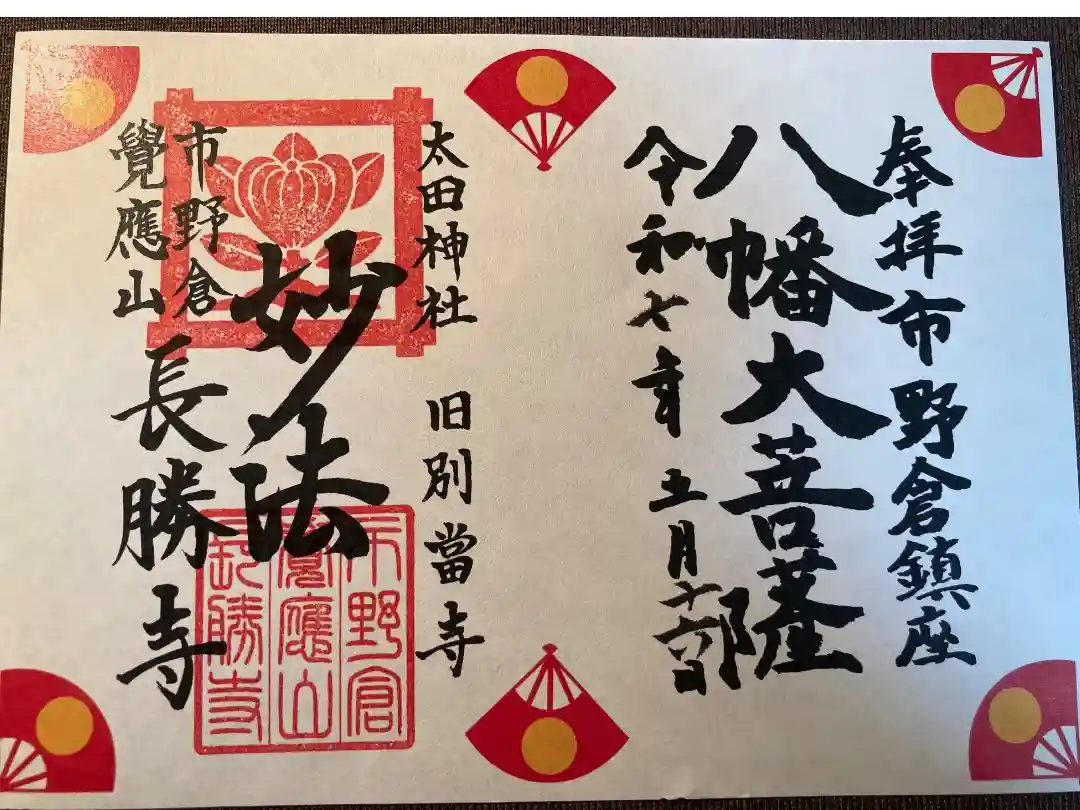 奉拝市野倉鎮座
八幡大菩薩
令和七年五月十六日
太田神社 旧別當寺
妙法
市野倉
覺應山
長勝寺
市野倉
覺應山
長勝寺